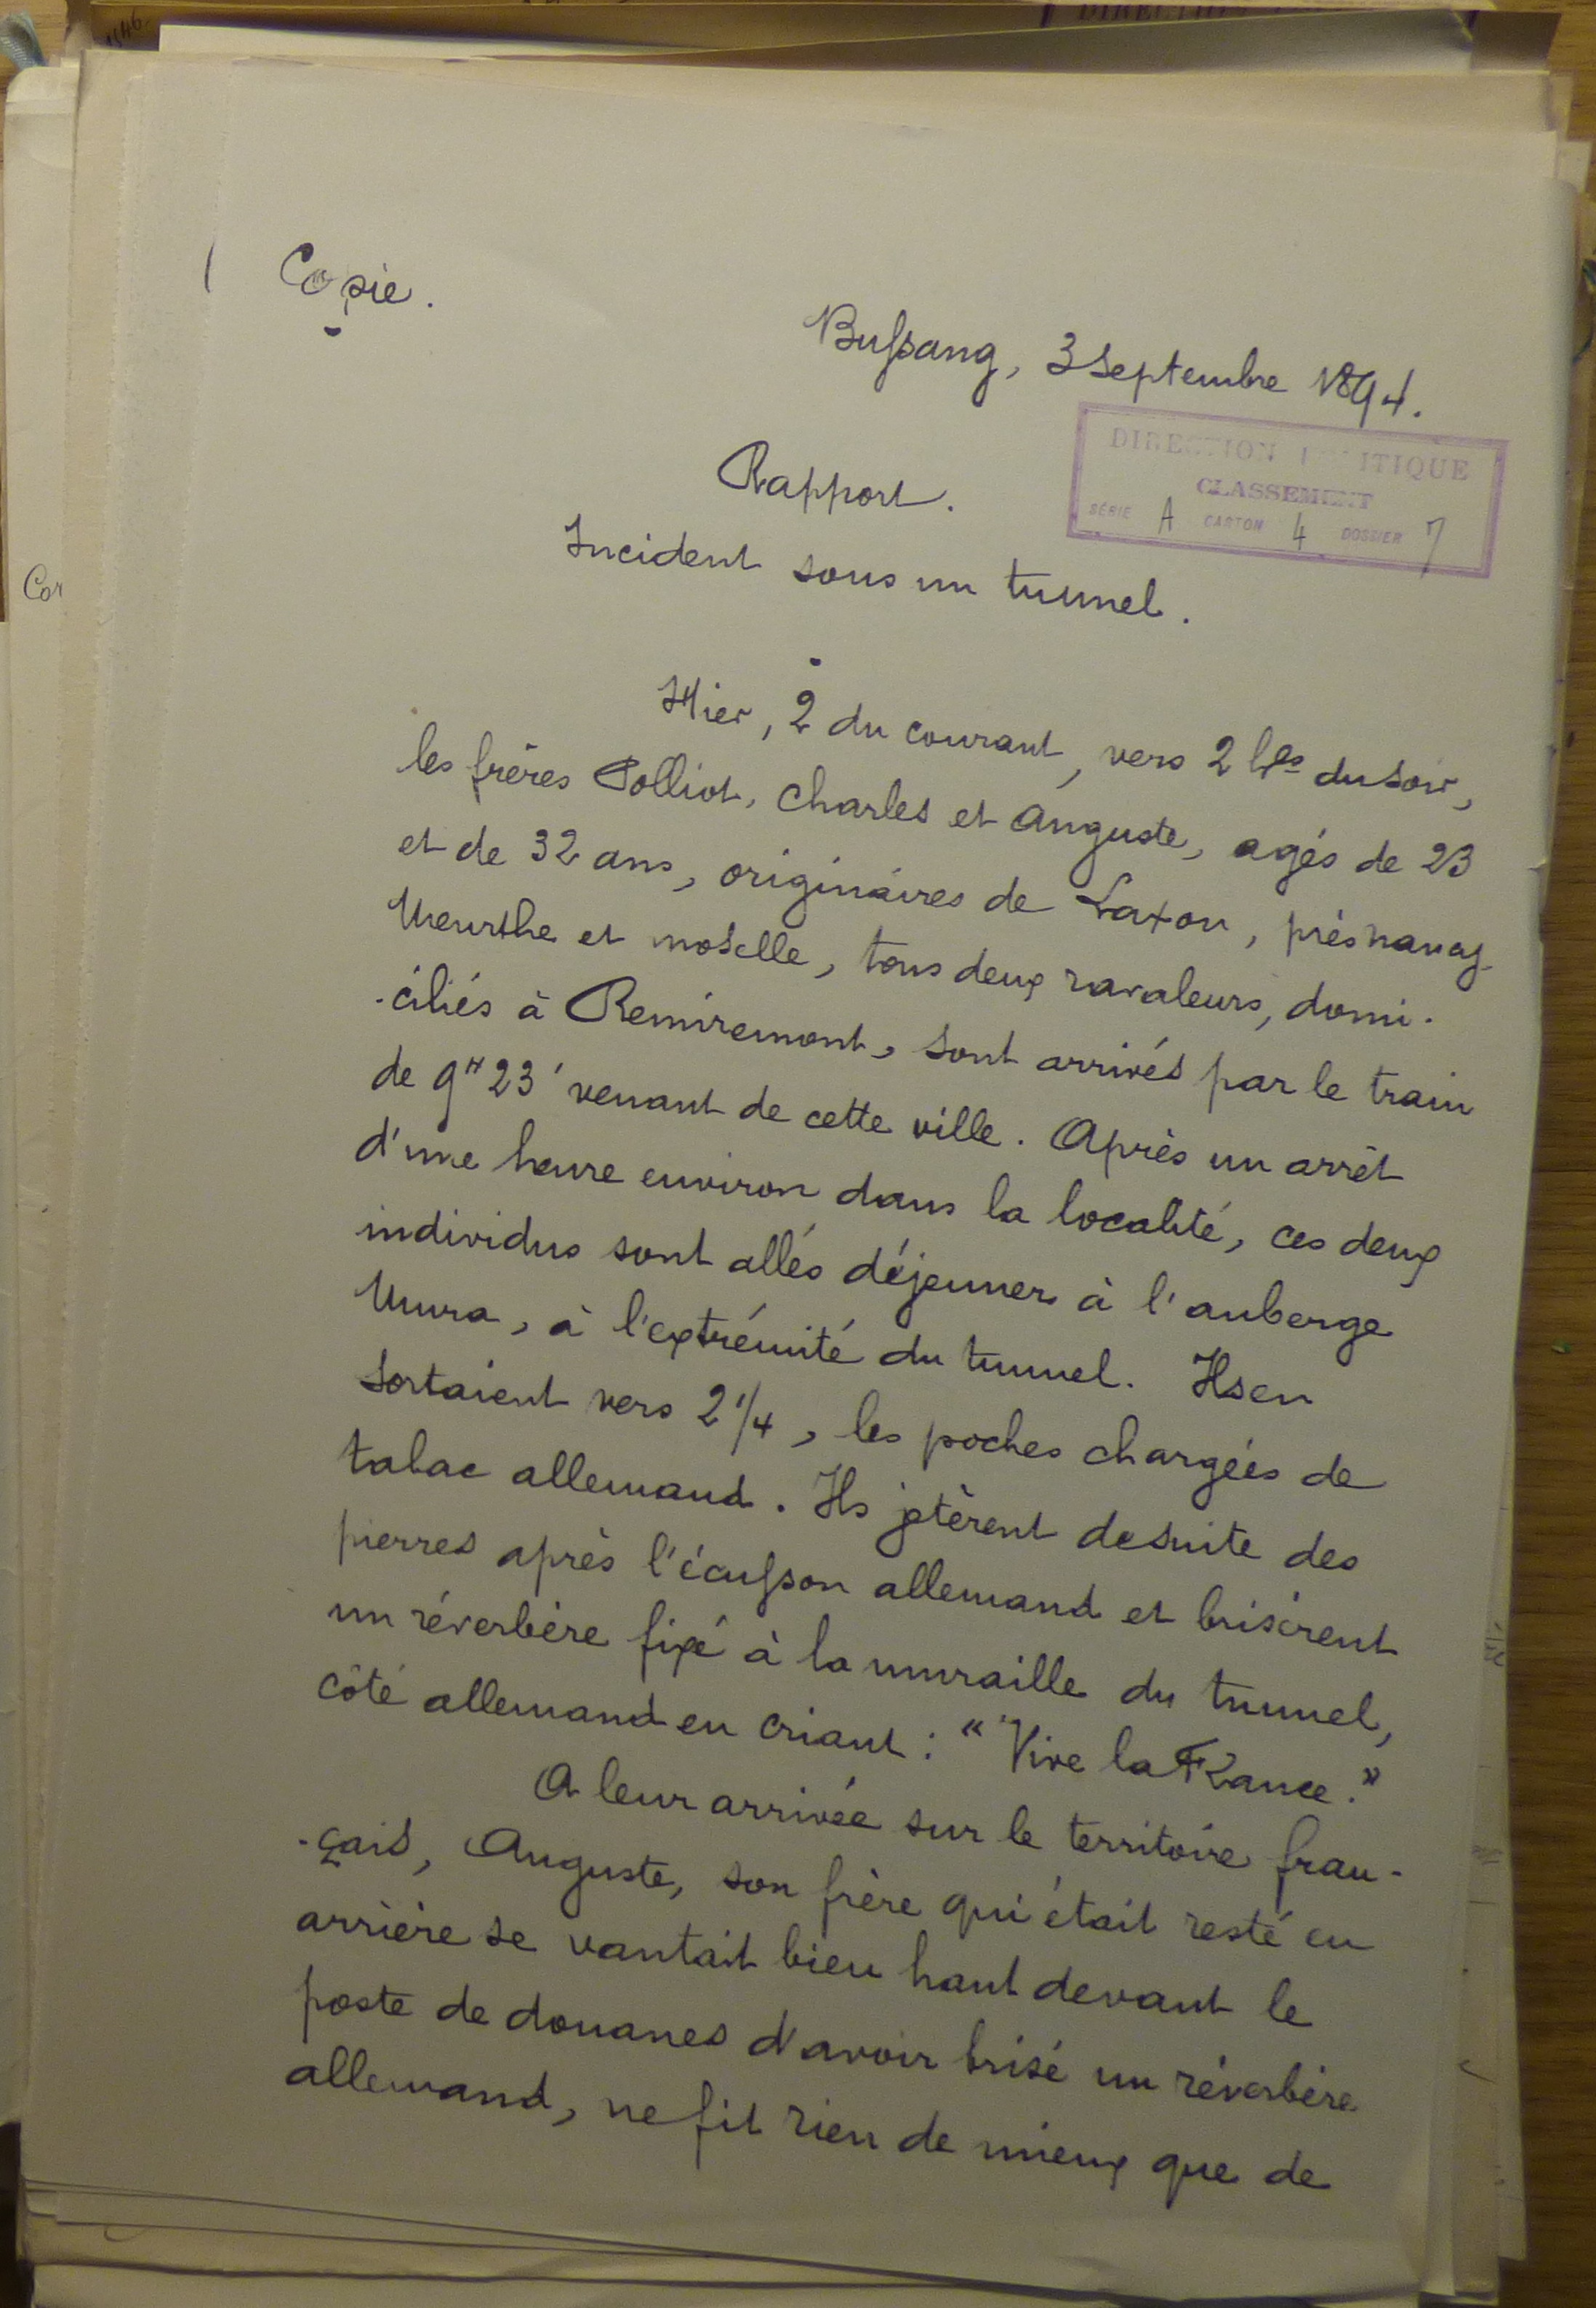 Copie.
Bussang, 3 Septembre 1894.
DIRECTION POLITIQUE
CLASSEMENT
SÉRIE A CARTON 4 DOSSIER 7
Rapport.
Incident sous un tunnel.
Hier, 2 du courant, vers 2 hes du soir,
les frères Polliot, Charles et Auguste, agés de 23
et de 32 ans, originaires de Laxou, près nancy
Meurthe et moselle, tous deux ravaleurs, domi-
-ciliés à Remiremont, sont arrivés par le train
de 9H 23' venant de cette ville. Après un arrêt
d'une heure environ dans la localité, ces deux
individus sont allés déjeuner à l'auberge
Mura, à l'extrémité du tunnel. Ils en
sortaient vers 2 1/4, les poches chargées de
tabac allemand. Ils jetèrent desuite des
pierres après l'écusson allemand et brisèrent
un réverbère fixé à la muraille du tunnel,
côté allemand en criant : "Vive la France."
A leur arrivée sur le territoire fran-
-çais, Auguste, son frère qui était resté en
arrière se vantait bien haut devant le
poste de douanes d'avoir brisé un réverbère
allemand, ne fit rien de mieux que de